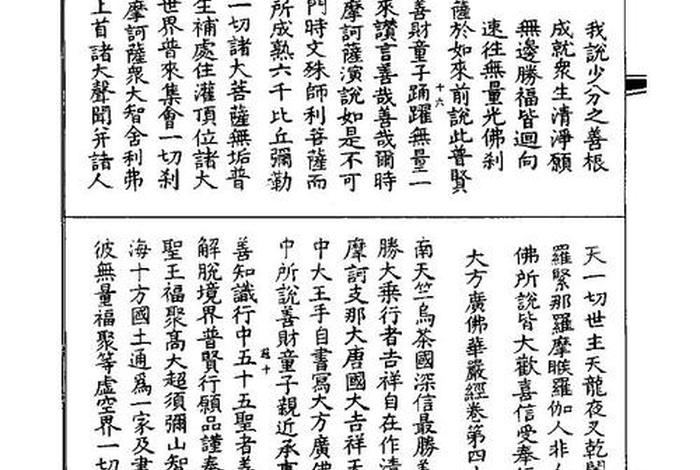 我說少分之善根
成就衆生清淨願
無邊勝福皆迴向
速往無量光佛刹
薩於如來前說此普賢
十六
善財童子踊躍無量一
來讃言善哉善哉爾時
摩訶薩演說如是不可
門時文殊師利菩薩而
所成熟六千比丘彌勒
一切諸大菩薩無垢普
生補處住灌頂位諸大
世界普來集會一切刹
摩訶薩衆大智舍利弗
上首諸大聲聞并諸人
天一切世主天龍夜叉乾闥
羅緊那羅摩睺羅伽人非人
佛所說皆大歡喜信受奉行
大方廣佛華嚴經卷第四十
南天竺烏茶國深信最勝善
勝大乗行者吉祥自在作清
摩訶支那大唐國大吉祥天
中大王手自書寫大方廣佛
中所說善財童子親近承事
善知識行中五十五聖者善
解脫境界普賢行願品謹奉
聖王福聚髙大超須彌山智
海十方國土通爲一家及書
彼無量福聚等虛空界一切